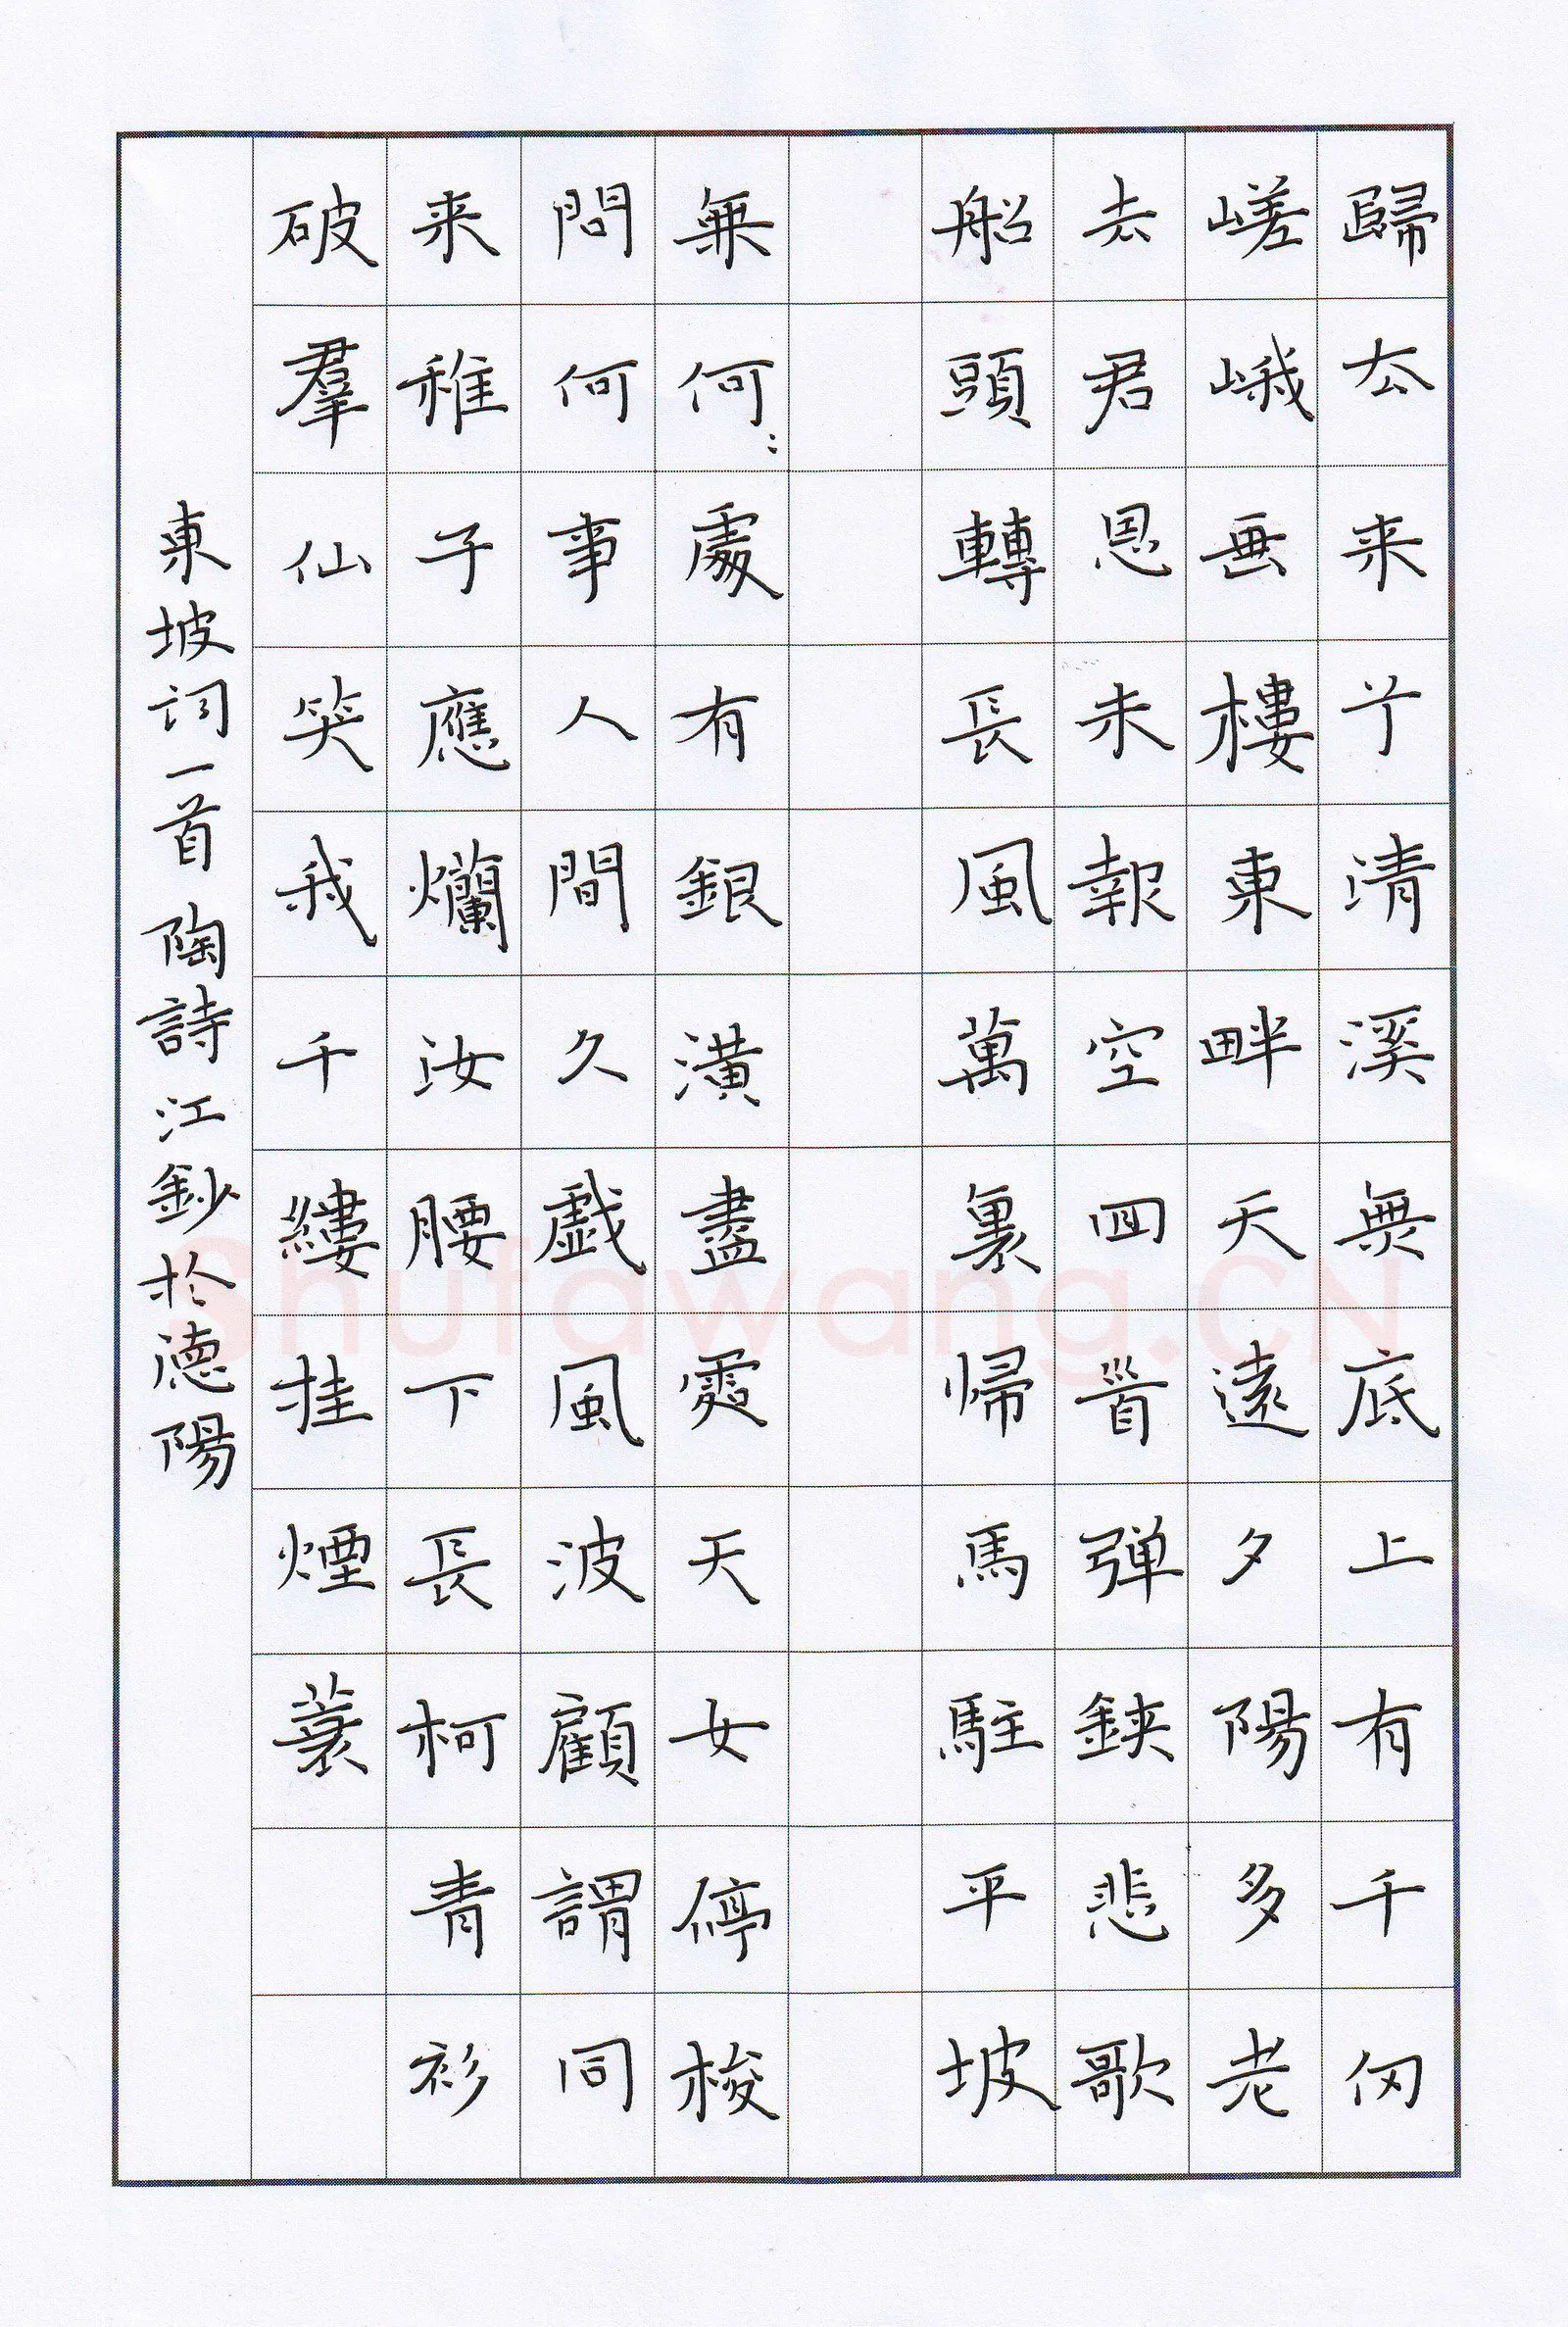 歸去来兮清溪無底上有千仞
嵯峨画樓東畔天遠夕陽多老
去君恩未報空回首弹鋏悲歌
船頭轉長風萬裏帰馬駐平坡
無何:處有銀潢盡處天女停梭
問何事人間久戯風波顧謂同
来稚子應爛汝腰下長柯青衫
破羣仙笑我千縷挂煙蓑
東坡词一首陶詩江鈔於德陽
Shufawang.CN